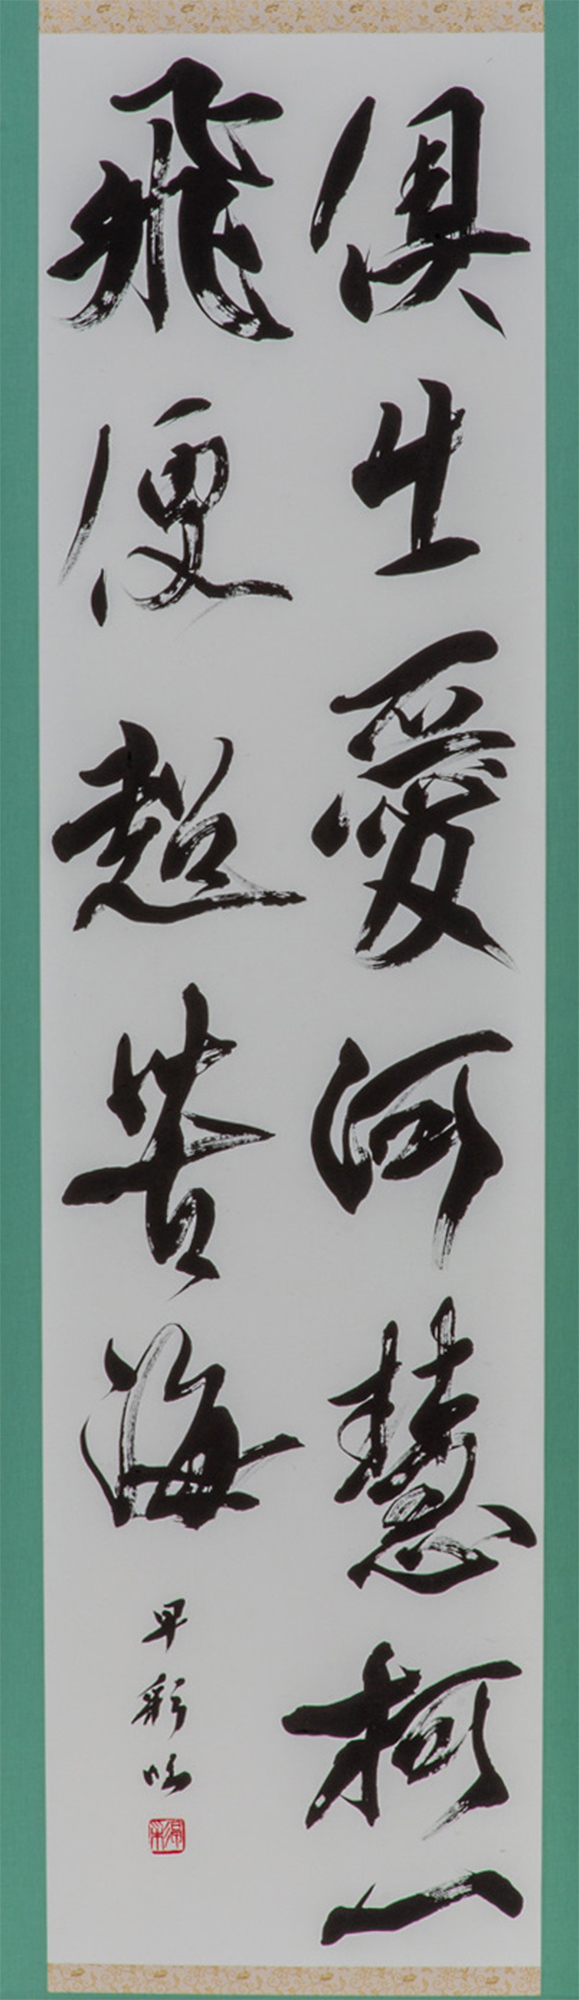 俱出愛河慧柯一
飛便超苦海
早彩